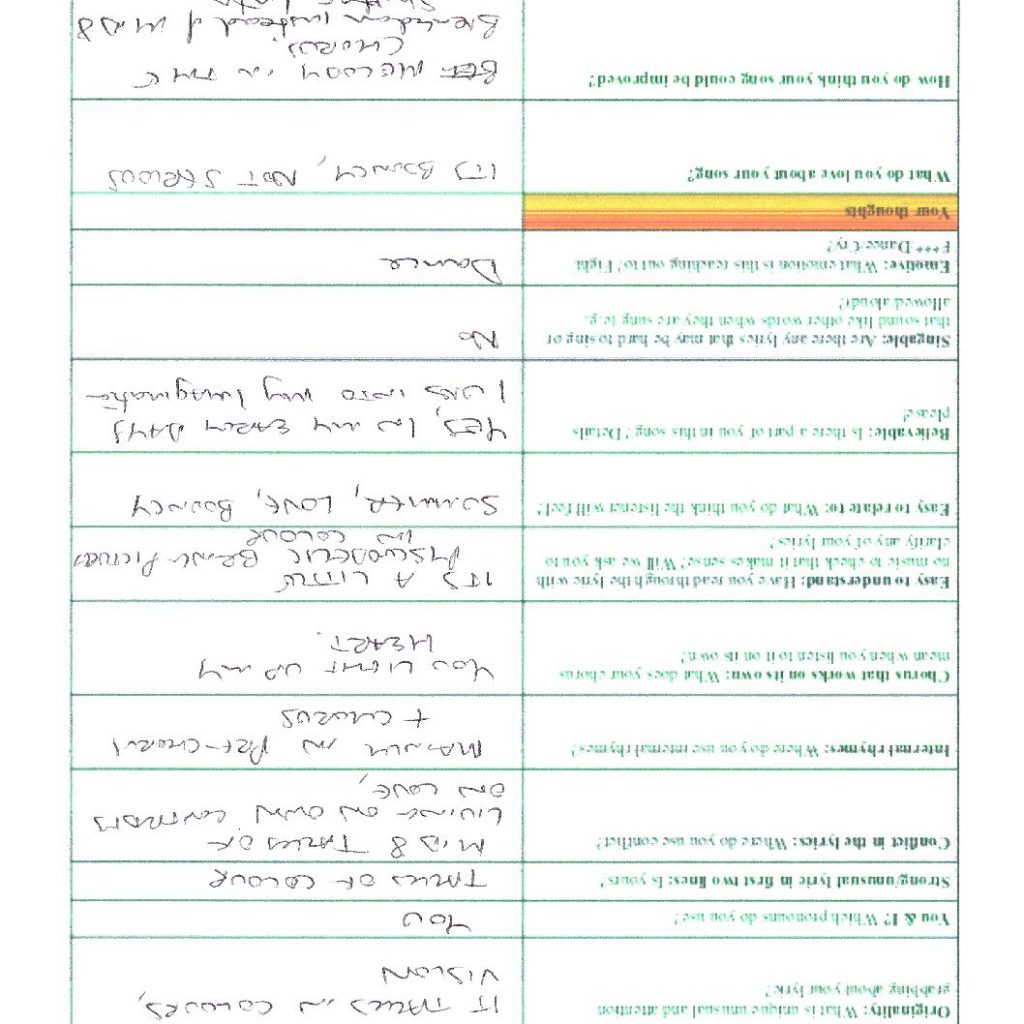 Originality: What is unique unusual and attention
grabbing about your lyric?
IT TALKS IN COLOURS,
VISION
You & I? Which pronouns do you use?
YOU
Strong/unusual lyric in first two lines: Is yours?
TALKS OF COLOUR
Conflict in the lyrics: Where do you use conflict?
MID 8 TALKS OF
LIVING ON OWN CONTRASTS
ON LOVE,
Internal rhymes: Where do you use internal rhymes?
MAINLY IN PRE-CHORUS
+ CHORUS
Chorus that works on its own: What does your chorus
mean when you listen to it on its own?
YOU LIGHT UP MY
HEART.
Easy to understand: Have you read through the lyric with
no music to check that it makes sense? Will we ask you to
clarify any of your lyrics?
IT'S A LITTLE
PSYCHODELIC PICTURES
IN COLOUR
Easy to relate to: What do you think the listener will feel?
SUMMER, LOVE, BOUNCY
Believable: Is there a part of you in this song? Details
please!
YES, IN MY EARLY DAYS
I WAS INTO MY Imagination
Singable: Are there any lyrics that may be hard to sing or
that sound like other words when they are sung (e.g.
allowed aloud)?
No
Emotive: What emotion is this reaching out to? Fight
F*** Dance Cry?
Dance
Your thoughts
What do you love about your song?
IT'S BOUNCY, NOT SERIOUS
How do you think your song could be improved?
MELODY IN THE
CHORUS.
Breakdown instead of MID 8